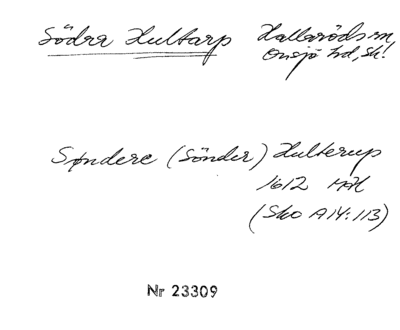 Södra Hultarp Hallaröds sn,
Onsjö hd, Sk!
Søndere (Sönder) Hulterup
1612 MH
(Sko A 14:113)
Nr 23309